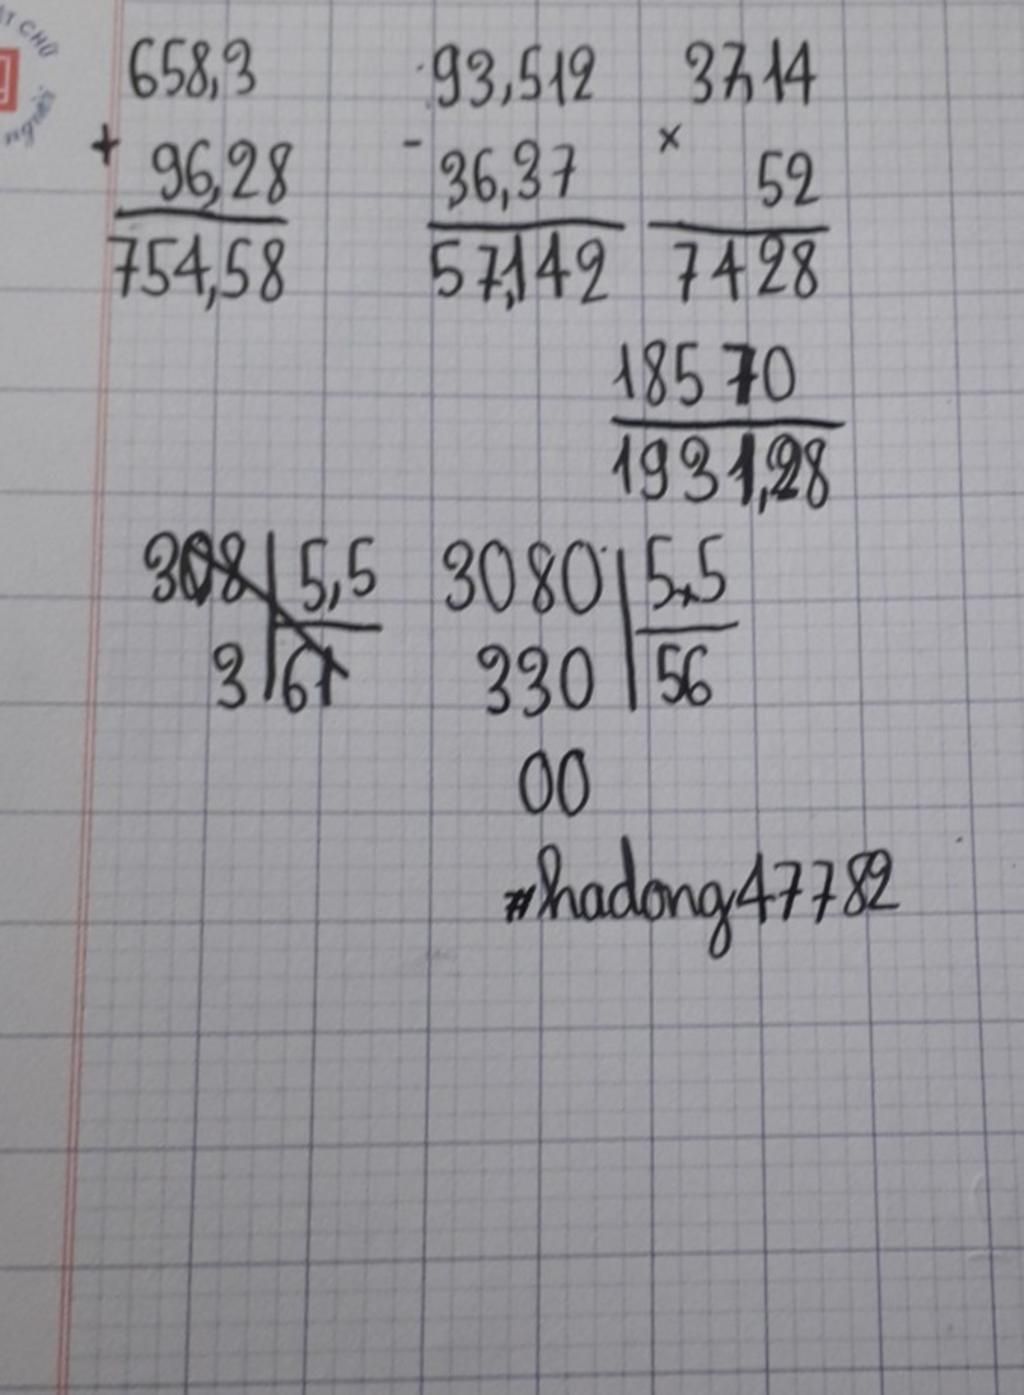 658,3 93,512 37,14
+ - ×
96,28 36,37 52
754,58 57,142 7428
18570
1931,28
308 5,5 3080 5,5
3 61 330 56
00
#hadong47782